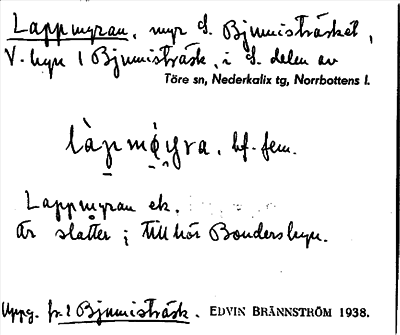 Lappmyran, myr S. Bjumisträsket,
V. byn i Bjumisträsk, i S. delen av
Töre sn, Nederkalix tg, Norrbottens l.
làpmỳra, bf. fem.
Lappmyran ek.
är slåtter; tillhör Bondersbyn.
Uppg. fr. i Bjumisträsk. EDVIN BRÄNNSTRÖM 1938.